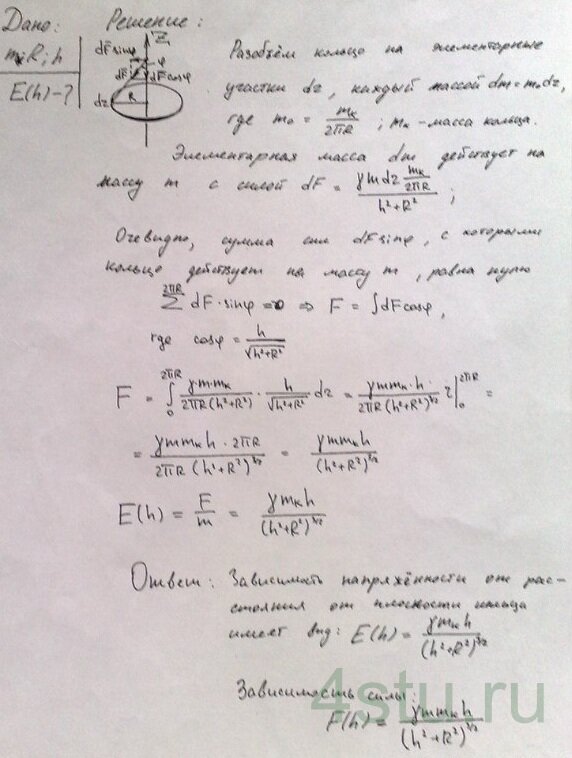 Дано:
m; R; h
E(h)-?
Решение:
Z
dF sinφ
φ
dF
dF cosφ
dz
R
Разобьём кольцо на элементарные
участки dz, каждый массой dm = m₀dz,
где m₀ = mₖ/2πR ; mₖ - масса кольца.
Элементарная масса dm действует на
массу m с силой dF = γm dz (mₖ/2πR)/(h²+R²) ;
Очевидно, сумма сил dF sinφ, с которыми
кольцо действует на массу m, равна нулю
∑^(2πR) dF·sinφ = 0 ⇒ F = ∫dF cosφ,
где cosφ = h/√(h²+R²)
F = ∫₀^(2πR) γm·mₖ/(2πR(h²+R²)) · h/√(h²+R²) dz = γmmₖ·h·/(2πR(h²+R²)^(3/2)) z|₀^(2πR) =
= γmmₖh·2πR/(2πR(h²+R²)^(3/2)) = γmmₖh/(h²+R²)^(3/2)
E(h) = F/m = γmₖh/(h²+R²)^(3/2)
Ответ: Зависимость напряжённости от рас-
стояния от плоскости кольца
имеет вид: E(h) = γmₖh/(h²+R²)^(3/2)
Зависимость силы:
F(h) = γmmₖh/(h²+R²)^(3/2)
4stu.ru